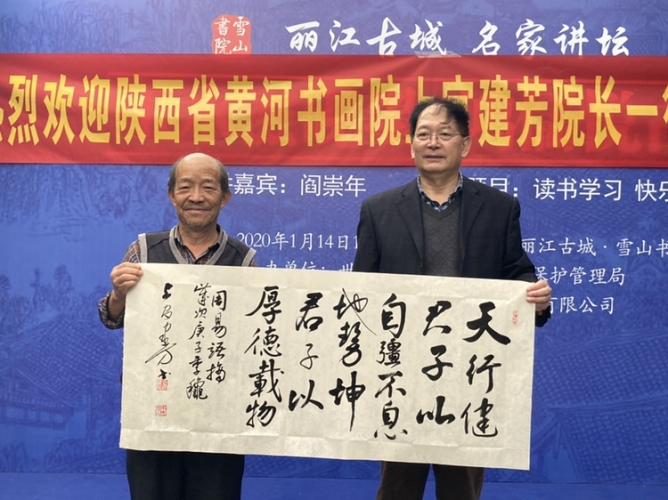 雪山
書院
丽江古城 名家讲坛
烈欢迎陕西省黄河书画院上官建芳院长一
嘉宾：阎崇年
目：读书学习 快乐
2020年1月14日
丽江古城·雪山书
办单位：世
保护管理局
有限公司
天行健
君子以
自彊不息
地勢坤
君子以
厚德載物
周易語摘
歲次庚子季穐